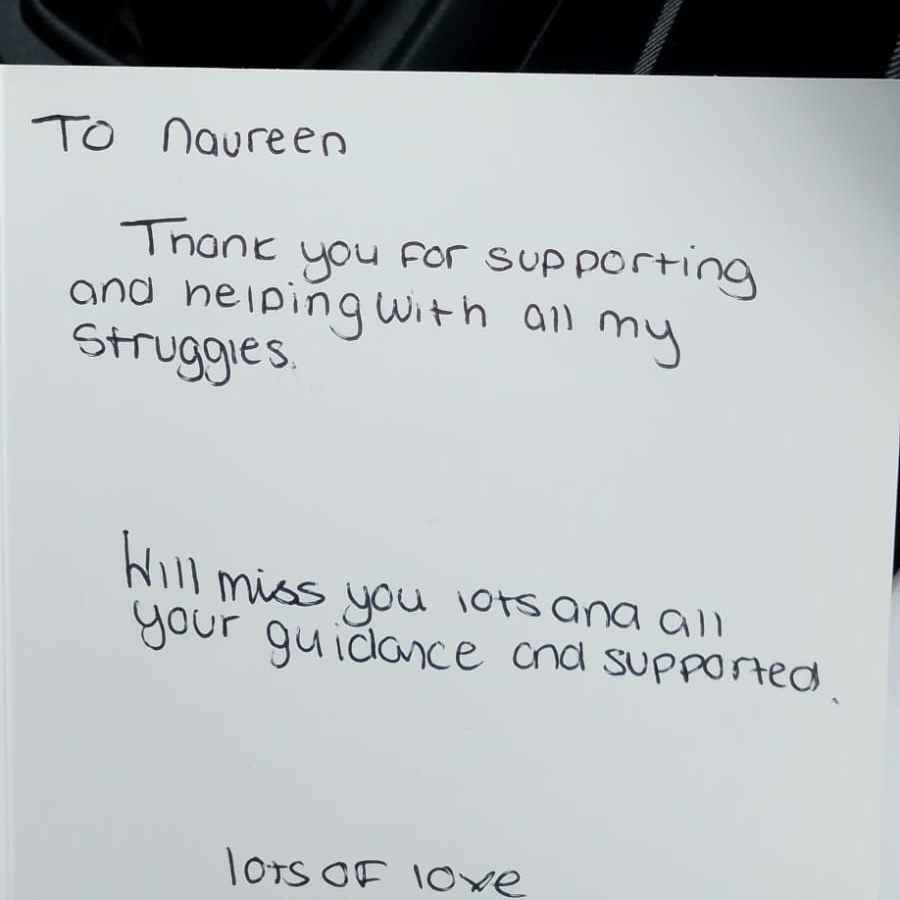 To Naureen
Thank you for supporting
and helping with all my
Struggles.
Will miss you lots and all
your guidance and supported.
lots OF love